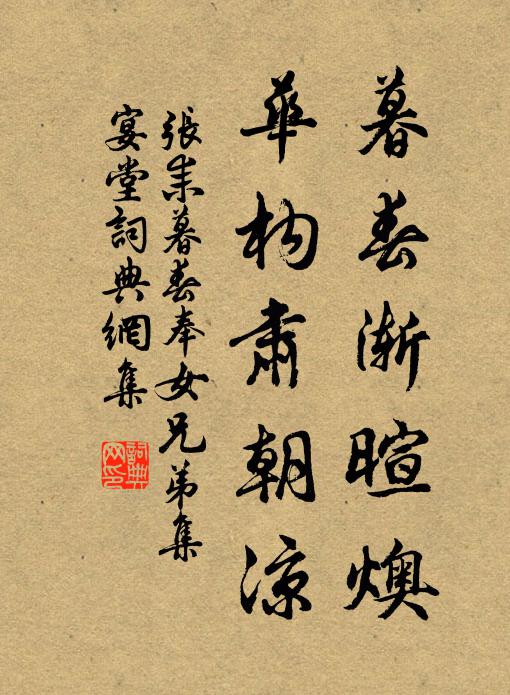 暮春漸暄燠
華构肅朝涼
張耒暮春奉女兄弟集
宴堂詞典網集
詞典
网印